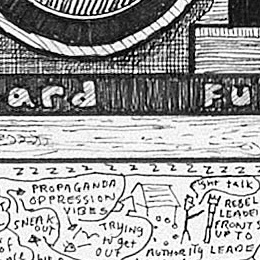 ard Fu
z z z z z z z z z z z z z z z
PROPAGANDA
OPPRESSION
VIBES
SNEAK
OUT
TRYING
to get
OUT
ight talk
REBEL
LEADER
FRONTS
UP TO
AUTHORITY LEADE
of